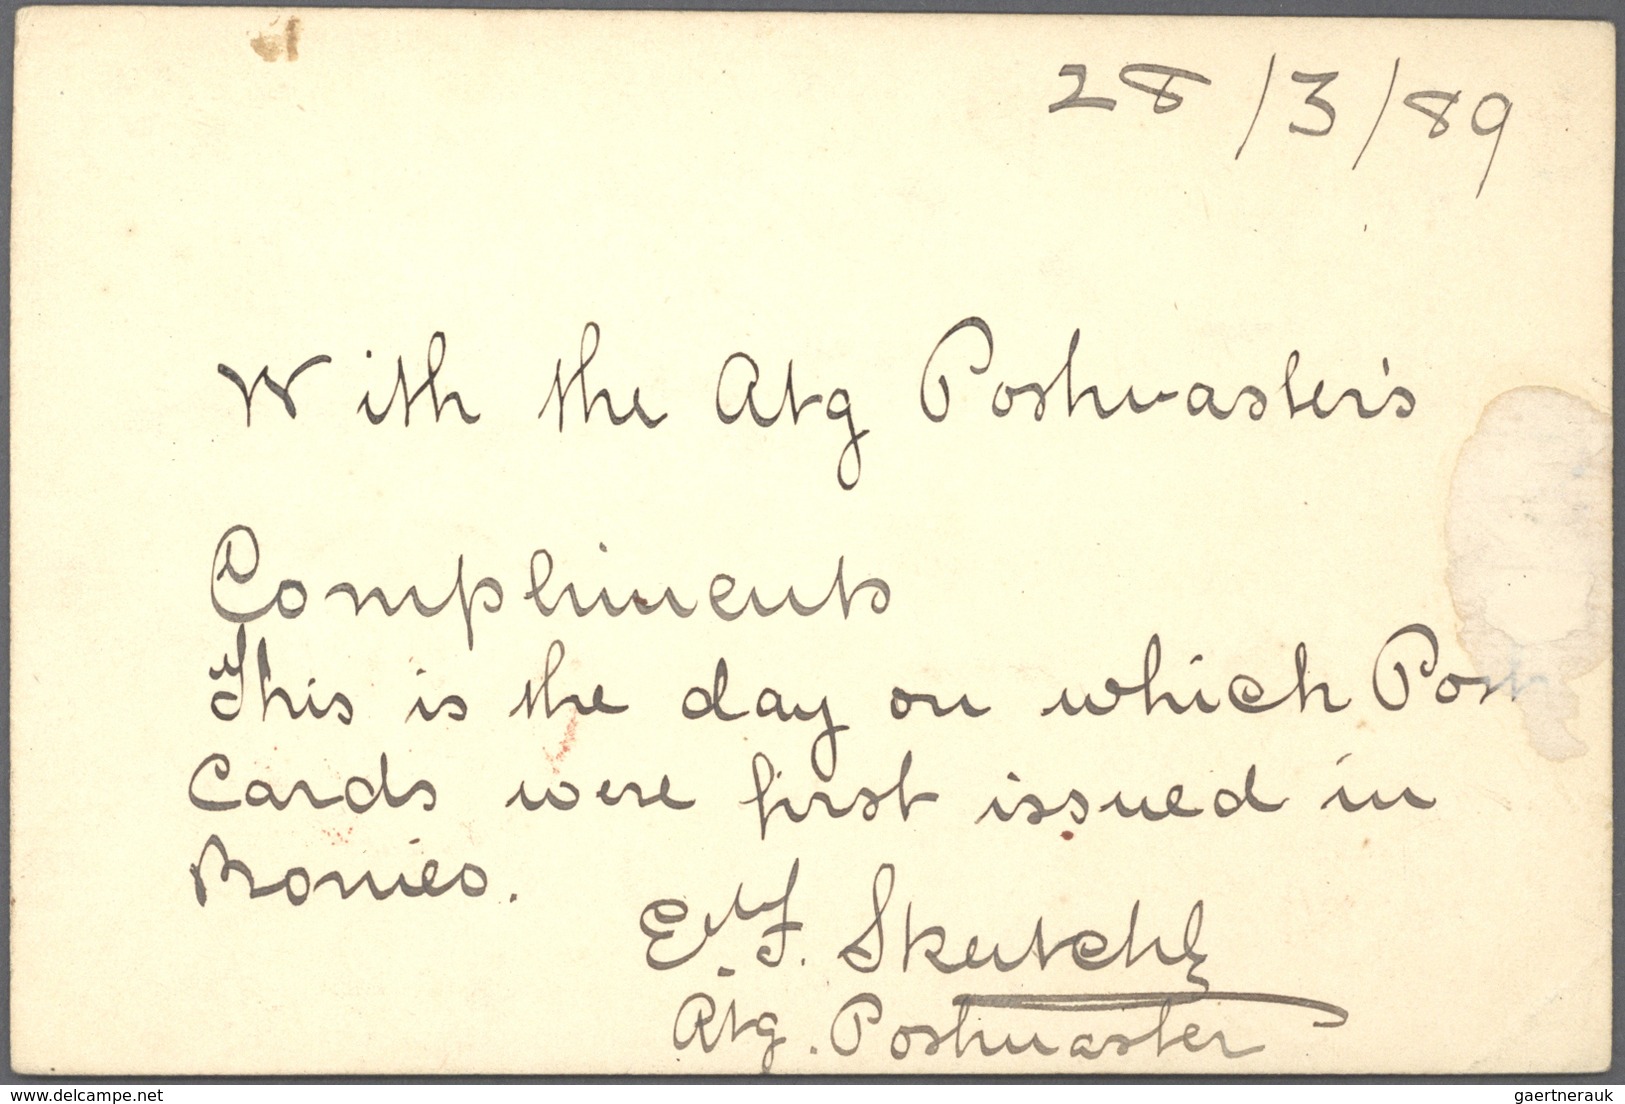 28/3/89
With the Atg Postmaster's
Compliments
This is the day on which Post
Cards were first issued in
Borneo.
E. F. Skertchly
Atg. Postmaster
delcampe.net
gaertnerauk